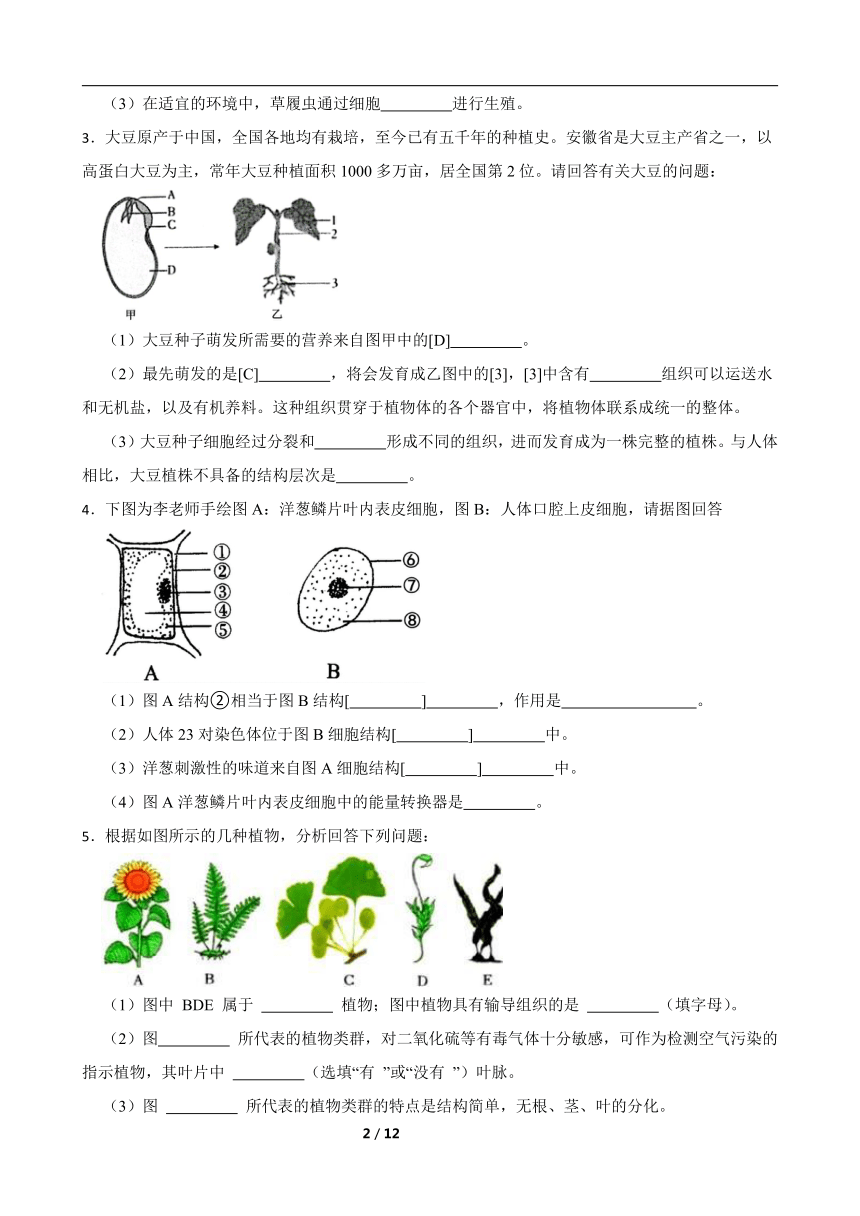 （3）在适宜的环境中，草履虫通过细胞 进行生殖。
3．大豆原产于中国，全国各地均有栽培，至今已有五千年的种植史。安徽省是大豆主产省之一，以
高蛋白大豆为主，常年大豆种植面积 1000 多万亩，居全国第 2 位。请回答有关大豆的问题：
A
B
C
D
甲
1
2
3
乙
（1）大豆种子萌发所需要的营养来自图甲中的[D] 。
（2）最先萌发的是[C] ，将会发育成乙图中的[3]，[3]中含有 组织可以运送水
和无机盐，以及有机养料。这种组织贯穿于植物体的各个器官中，将植物体联系成统一的整体。
（3）大豆种子细胞经过分裂和 形成不同的组织，进而发育成为一株完整的植株。与人体
相比，大豆植株不具备的结构层次是 。
4．下图为李老师手绘图 A：洋葱鳞片叶内表皮细胞，图 B：人体口腔上皮细胞，请据图回答
①
②
③
④
⑤
A
⑥
⑦
⑧
B
（1）图 A 结构②相当于图 B 结构[ ] ，作用是 。
（2）人体 23 对染色体位于图 B 细胞结构[ ] 中。
（3）洋葱刺激性的味道来自图 A 细胞结构[ ] 中。
（4）图 A 洋葱鳞片叶内表皮细胞中的能量转换器是 。
5．根据如图所示的几种植物，分析回答下列问题：
A B C D E
（1）图中 BDE 属于 植物；图中植物具有输导组织的是 （填字母）。
（2）图 所代表的植物类群，对二氧化硫等有毒气体十分敏感，可作为检测空气污染的
指示植物，其叶片中 （选填“有 ”或“没有 ”）叶脉。
（3）图 所代表的植物类群的特点是结构简单，无根、茎、叶的分化。
2 / 12